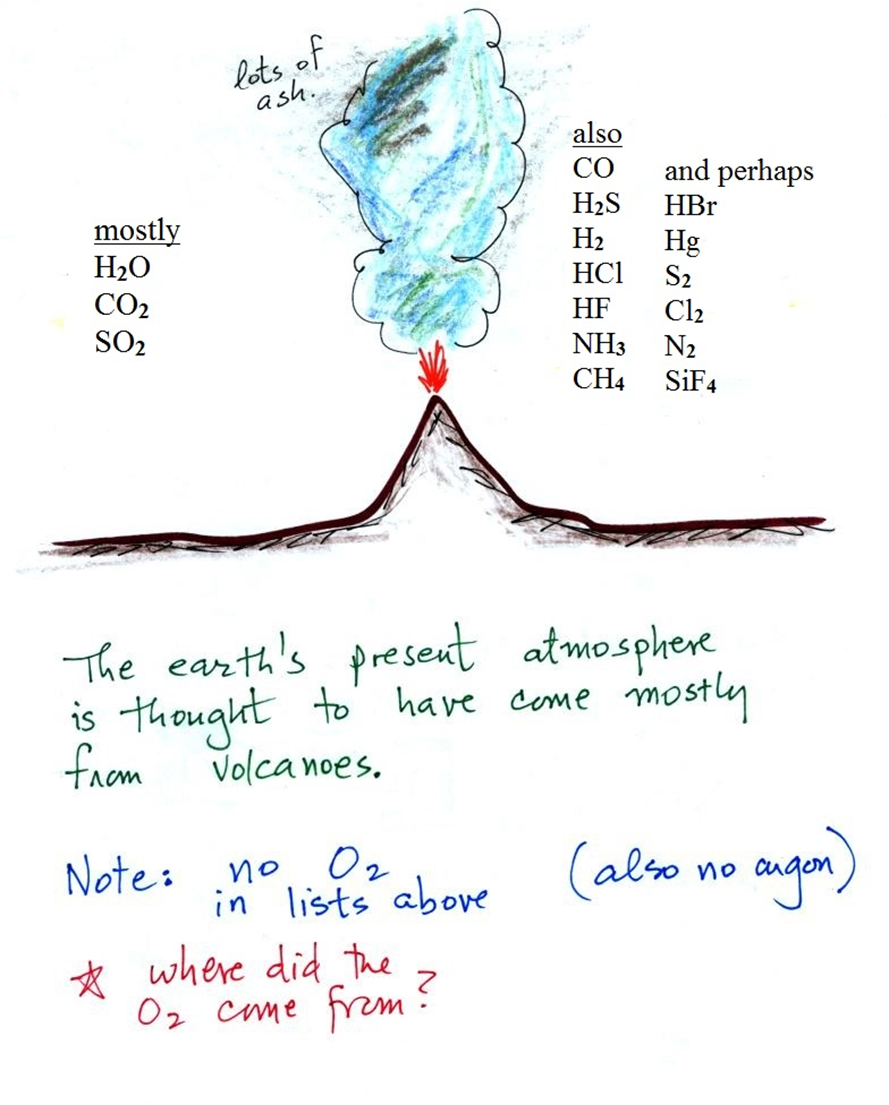 lots of
ash.
mostly
H₂O
CO₂
SO₂
also
CO
H₂S
H₂
HCl
HF
NH₃
CH₄
and perhaps
HBr
Hg
S₂
Cl₂
N₂
SiF₄
The earth's present atmosphere
is thought to have come mostly
from volcanoes.
Note: no O₂ (also no argon)
in lists above
☆ where did the
O₂ come from?